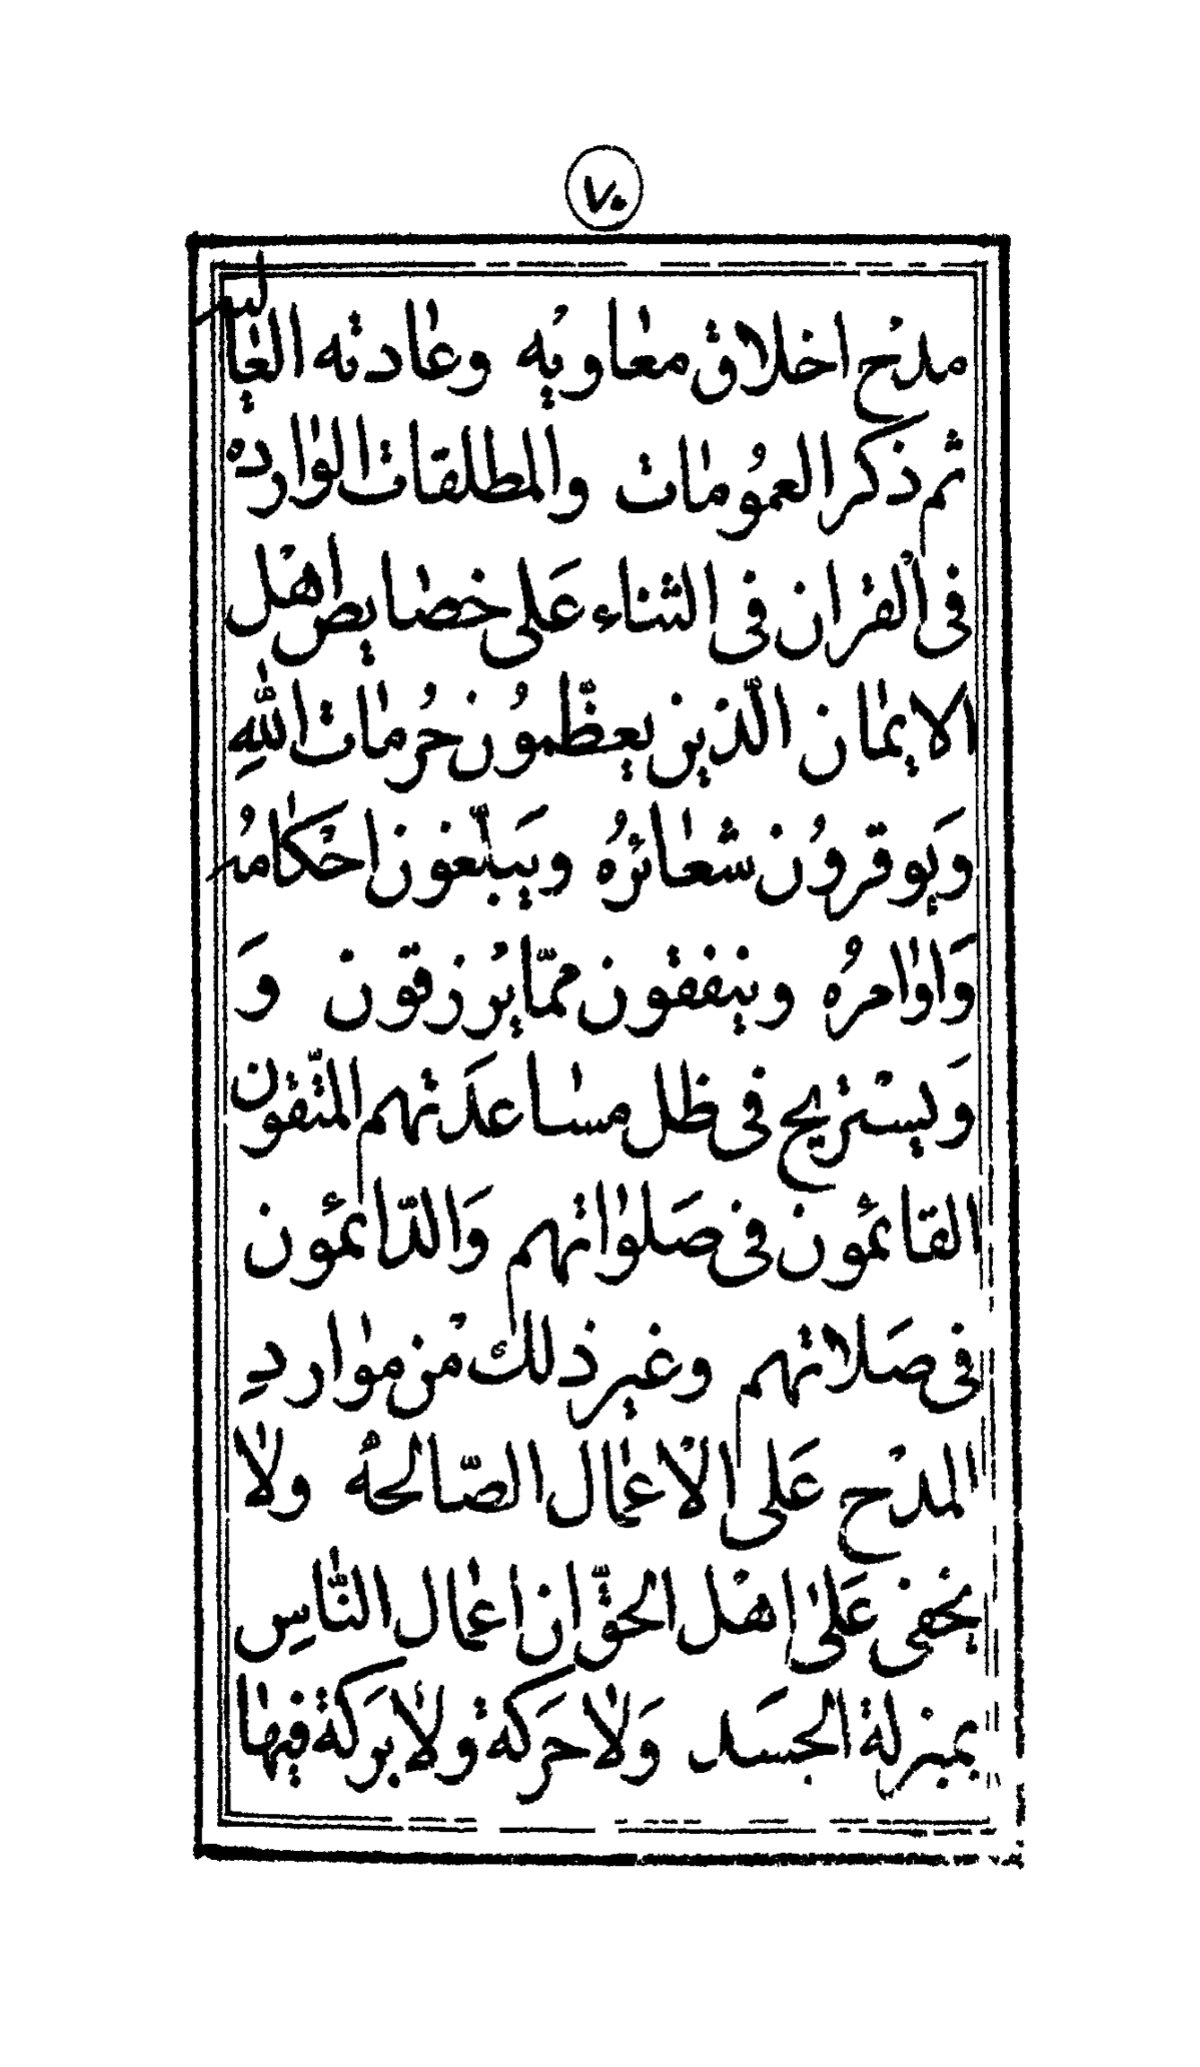 ٧٠
مدْح اخلاق معٰاويه وعٰادته العٰاليه
ثم ذكر العمُومٰات والمطلقات الوٰارده
فى اْلقران فى الثناء عَلى خصٰايص اهْل
الايمٰان الّذين يعظّمُون حُرمٰات اللّٰهِ
وَيوقرُون شعٰائرُه ويَبلّغون احْكٰامهُ
وَاوٰامرُه وينفقون ممّا يُرزقون وَ
وَيسْتريح فى ظل مسٰاعدَتهم المتّقون
القائمُون فى صَلوٰاتهم وَالدّائمُون
فى صَلاتهم وغير ذلك منْ موٰاردِ
المدْح عَلى الاْعمٰال الصّالحهُ ولاٰ
يخفى عَلىٰ اهْل الحقّ ان اعمٰال النّٰاسِ
بمنزلة الجسَد وَلاٰ حَركة ولاٰ بَركة فيهٰا